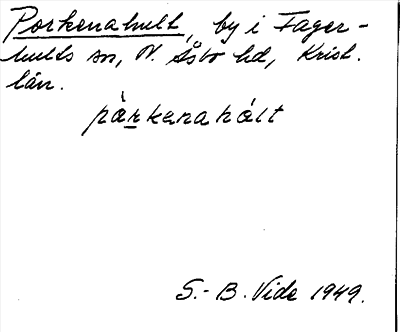 Porkenahult, by i Fager-
hults sn, N. Åsbo hd, Krist.
län.
pàrkenahált
S.-B. Vide 1949.